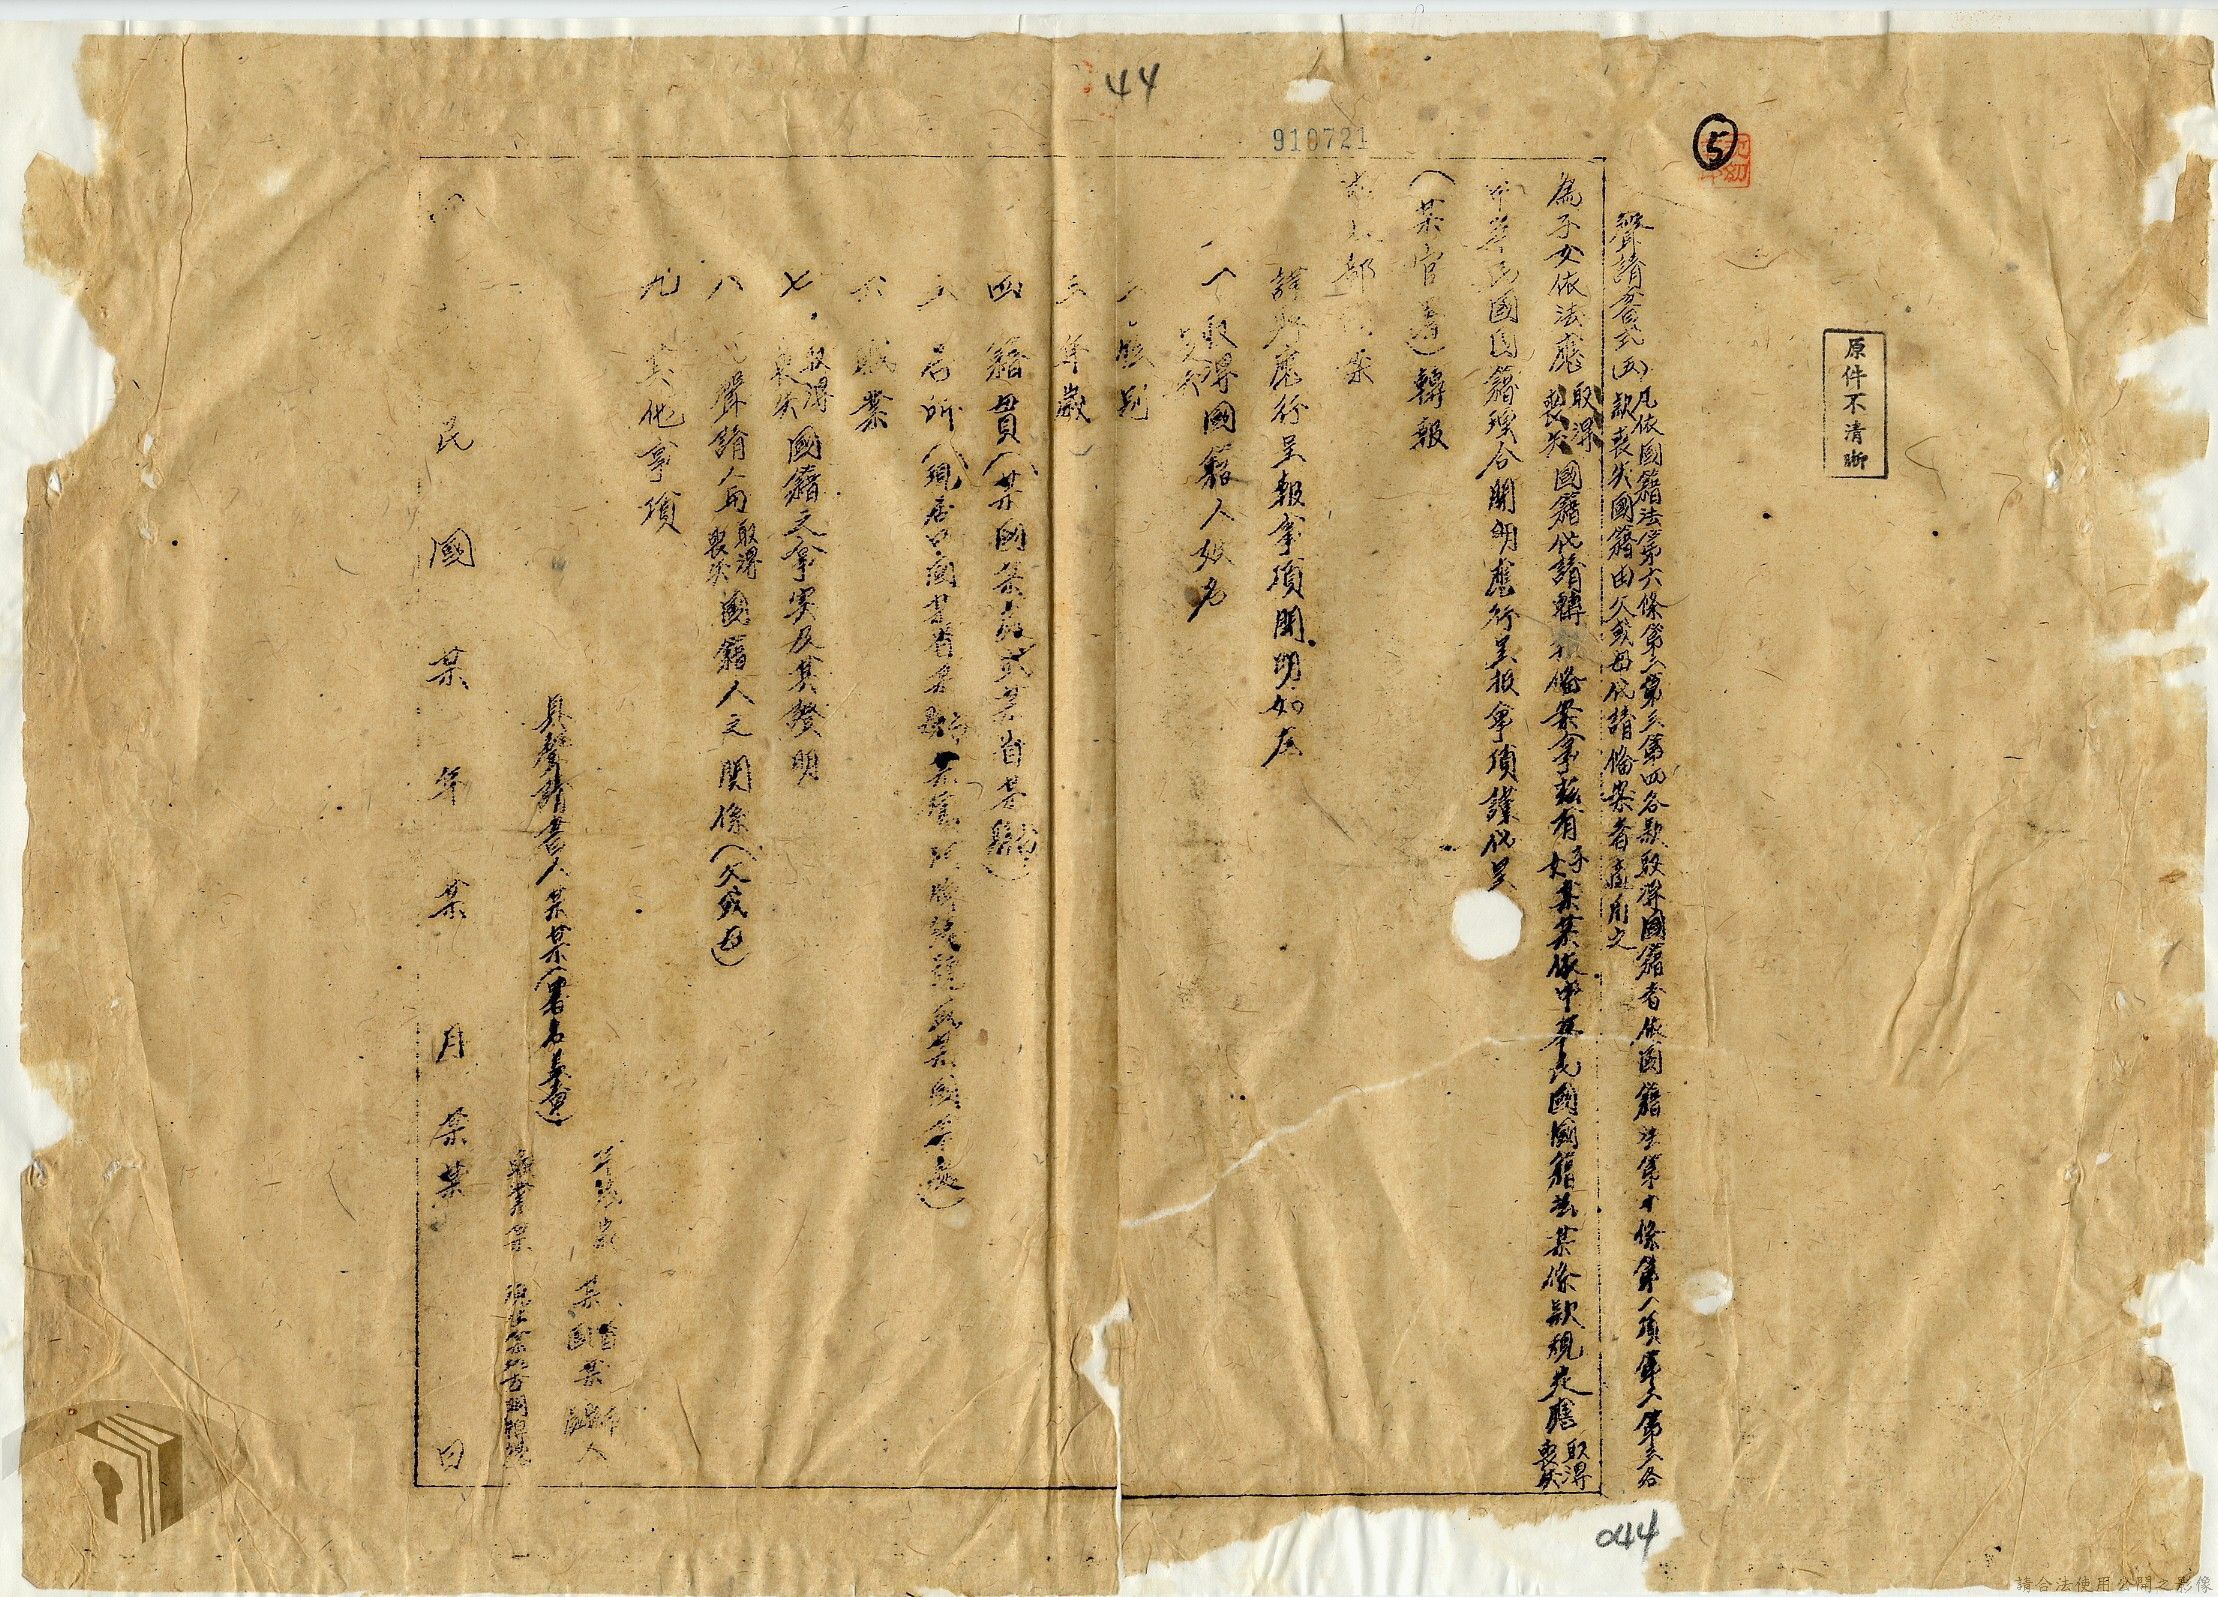 44
910721
5
原件不清晰
聲請書式(五)凡依國籍法第六條第二第三第四各款取得國籍者依國籍法第十條第一項第二第三各
款喪失國籍由父或母代請備案者適用之
為子女依法應取得喪失國籍代請轉報備案事茲有子女某某依中華民國國籍法某條款規定應取得喪失
中華民國國籍理合開明應行呈報事項謹代呈
(某官署)轉報
內政部備案
謹將應行呈報事項開明如左
一、取得喪失國籍人姓名
二、性別
三 年歲
四 籍貫(某國某處或某省某縣)
五 居所(現居中國某省某縣 門牌號數或某國某處)
六 職業
七、取得喪失國籍之事實及其證明
八 聲請人與取得喪失國籍人之關係(父或母)
九 其他事項
具聲請書人某某(署名蓋章)
年 歲 某國某省某縣市人
職業某 現住
民國某年某月某某日
044
請合法使用公開之影像